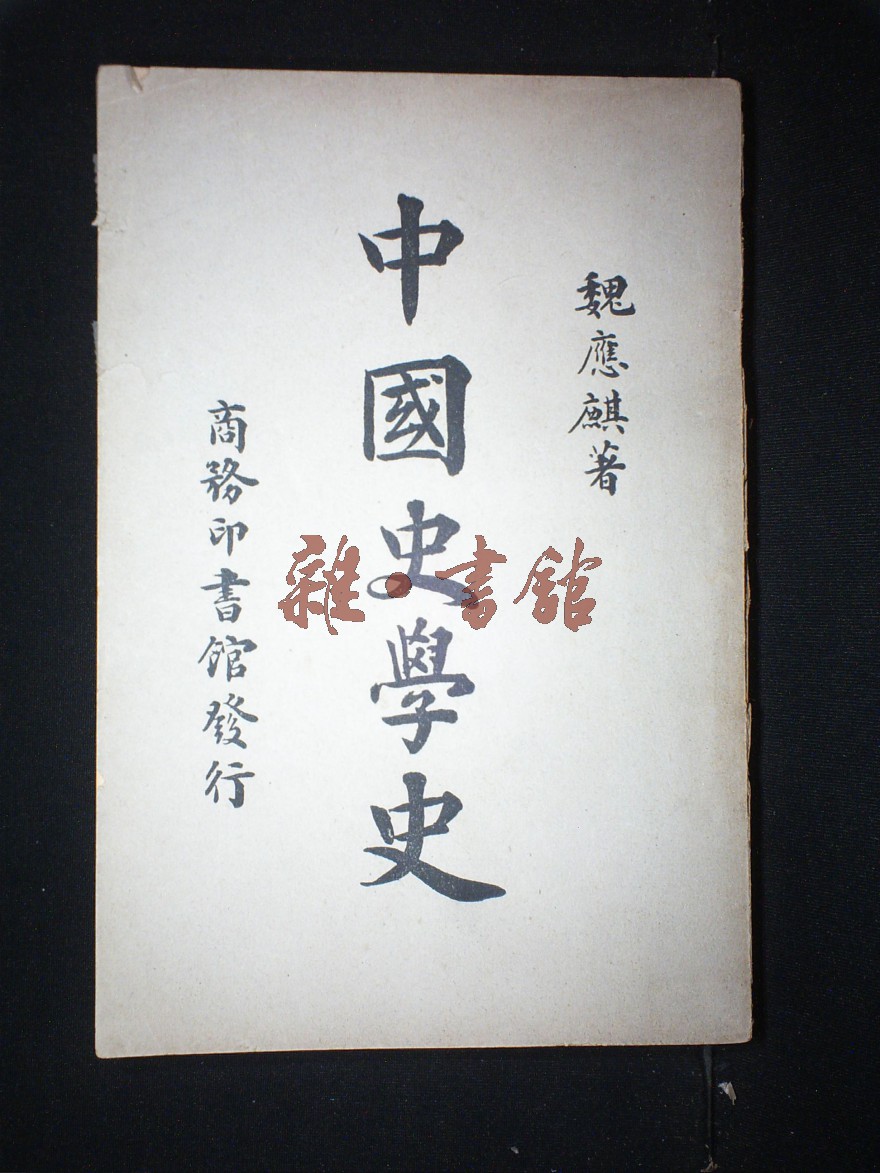 魏應麒著
中國史學史
商務印書館發行
雜·書館